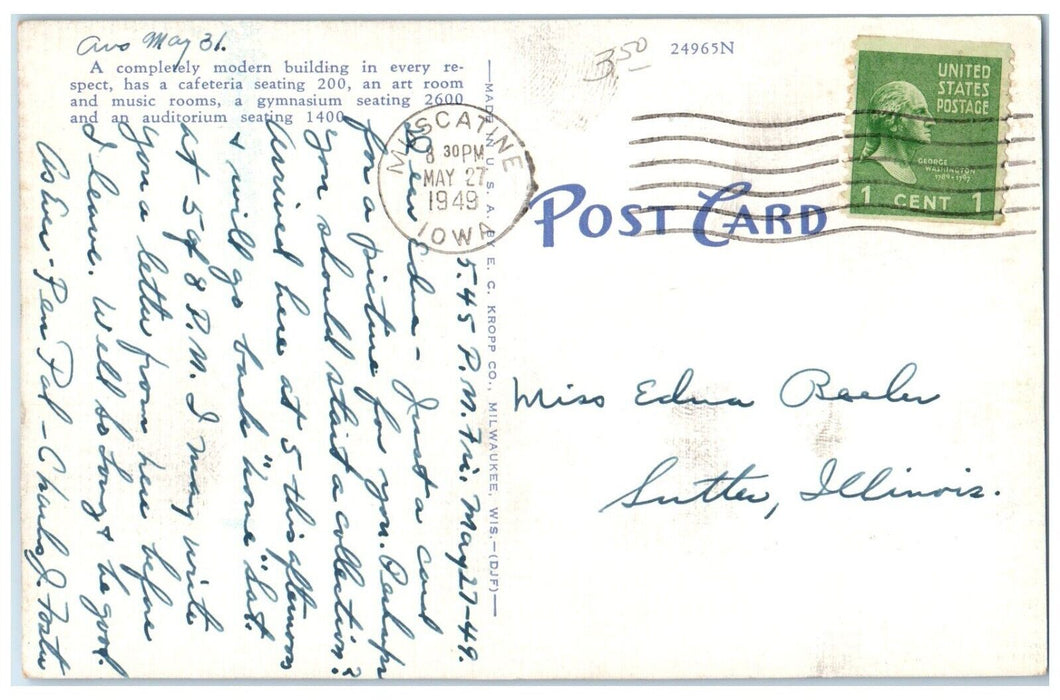 Ans May 31.
A completely modern building in every re-
spect, has a cafeteria seating 200, an art room
and music rooms, a gymnasium seating 2600
and an auditorium seating 1400.
3.50
24965N
UNITED
STATES
POSTAGE
GEORGE
WASHINGTON
1789-1797
1 CENT 1
MUSCATINE
8 30 PM
MAY 27
1949
IOWA
POST CARD
MADE IN U. S. A. BY E. C. KROPP CO., MILWAUKEE, WIS.—(DJF)
5.45 P.M. Fri. May 27-49.
Dear Edna - Just a card
for a picture for you. Perhaps
you should start a collection?
Arrived here at 5 this afternoon
& will go back "home" Sat.
at 5 of 8 P.M. I may write
you a letter from here before
I leave. Well So Long & be good.
As Ever - Pen Pal - Charles J. Foster
Miss Edna Beeler
Sutter, Illinois.